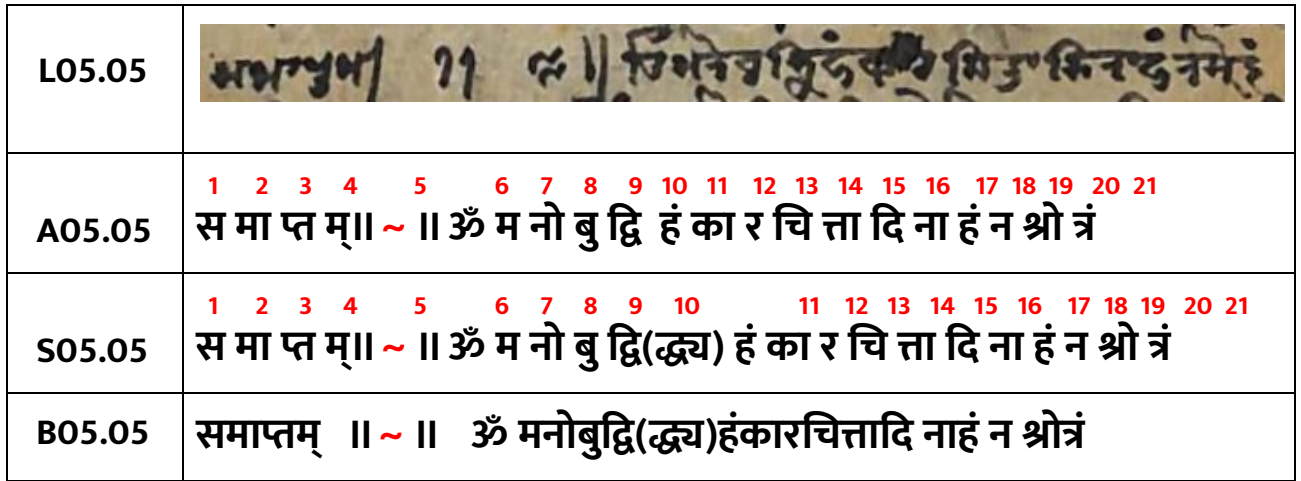 L05.05
1 2 3 4 5 6 7 8 9 10 11 12 13 14 15 16 17 18 19 20 21
A05.05 स मा प्त म्॥ ~ ॥ ॐ म नो बु द्वि हं का र चि त्ता दि ना हं न श्रो त्रं
1 2 3 4 5 6 7 8 9 10 11 12 13 14 15 16 17 18 19 20 21
S05.05 स मा प्त म्॥ ~ ॥ ॐ म नो बु द्वि(द्ध्य) हं का र चि त्ता दि ना हं न श्रो त्रं
B05.05 समाप्तम् ॥ ~ ॥ ॐ मनोबुद्वि(द्ध्य)हंकारचित्तादि नाहं न श्रोत्रं